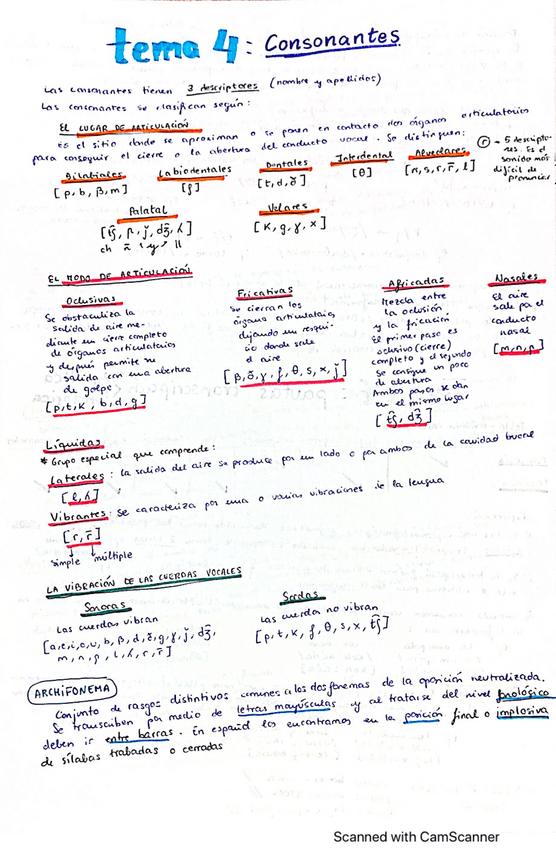 tema 4: Consonantes
Las consonantes tienen 3 descriptores (nombre y apellidos)
Las consonantes se clasifican según:
EL LUGAR DE ARTICULACIÓN
Es el sitio donde se aproximan o se ponen en contacto dos órganos articulatorios
para conseguir el cierre o la abertura del conducto vocal. Se distinguen:
(r) → 5 descripto-
res. Es el
sonido más
difícil de
pronunciar
Bilabiales
[p, b, β, m]
Labiodentales
[f]
Dentales
[t, d, ð]
Interdental
[θ]
Alveolares
[n, s, r, r̄, l]
Palatal
[t͡ʃ, ɲ, ǰ, d͡ʒ, ʎ]
ch ñ y ll
Velares
[k, g, ɣ, x]
EL MODO DE ARTICULACIÓN
Oclusivas
Se obstaculiza la
salida de aire me-
diante un cierre completo
de órganos articulatorios
y después permite su
salida con una abertura
de golpe
[p, t, k, b, d, g]
Fricativas
Se cierran los
órganos articulatorios
dejando un resqui-
cio donde sale
el aire
[β, ð, ɣ, f, θ, s, x, ǰ]
Africadas
Mezcla entre
la oclusión
y la fricación
El primer paso es
oclusivo (cierre)
completo y el segundo
se consigue un poco
de abertura
Ambos pasos se dan
en el mismo lugar
[t͡ʃ, d͡ʒ]
Nasales
El aire
sale por el
conducto
nasal
[m, n, ɲ]
Líquidas
* Grupo especial que comprende:
Laterales: la salida del aire se produce por un lado o por ambos de la cavidad bucal
[l, ʎ]
Vibrantes: Se caracteriza por una o varias vibraciones de la lengua
[r, r̄]
simple múltiple
LA VIBRACIÓN DE LAS CUERDAS VOCALES
Sonoras
Las cuerdas vibran
[a, e, i, o, u, b, β, d, ð, g, ɣ, ǰ, d͡ʒ,
m, n, ɲ, l, ʎ, r, r̄]
Sordas
Las cuerdas no vibran
[p, t, k, f, θ, s, x, t͡ʃ]
ARCHIFONEMA
Conjunto de rasgos distintivos comunes a los dos fonemas de la oposición neutralizada.
Se transcriben por medio de letras mayúsculas y al tratarse del nivel fonológico
deben ir entre barras. En español los encontramos en la posición final o implosiva
de sílabas trabadas o cerradas
Scanned with CamScanner